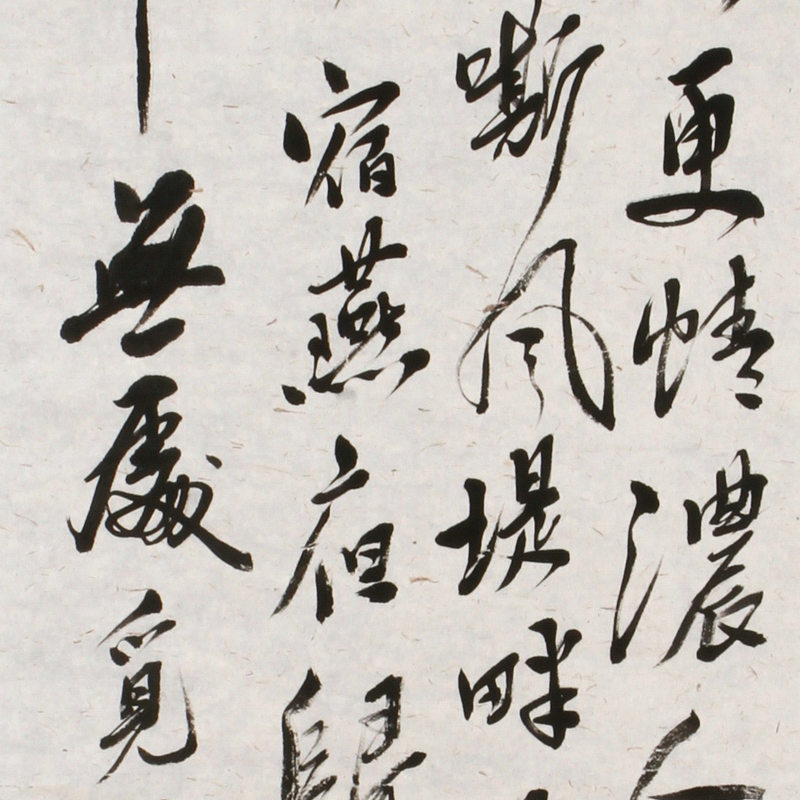 更情濃人
嘶風堤畔
宿燕夜歸
無處覓